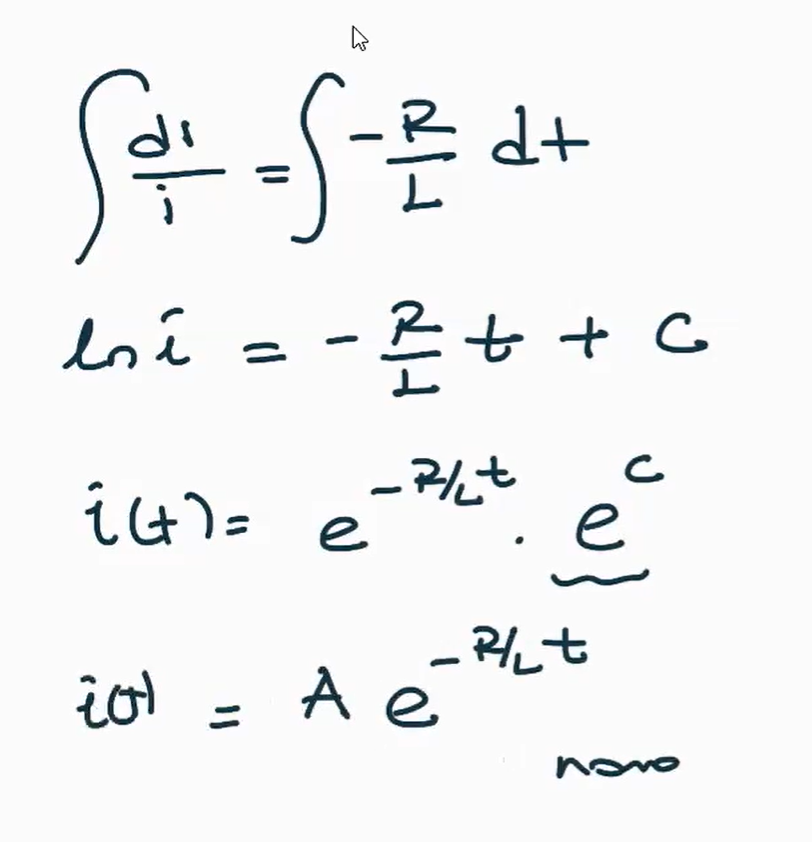 ∫ di/i = ∫ -R/L dt
ln i = - R/L t + C
i(t) = e^{-R/L t} . e^{C}
i(t) = A e^{-R/L t}